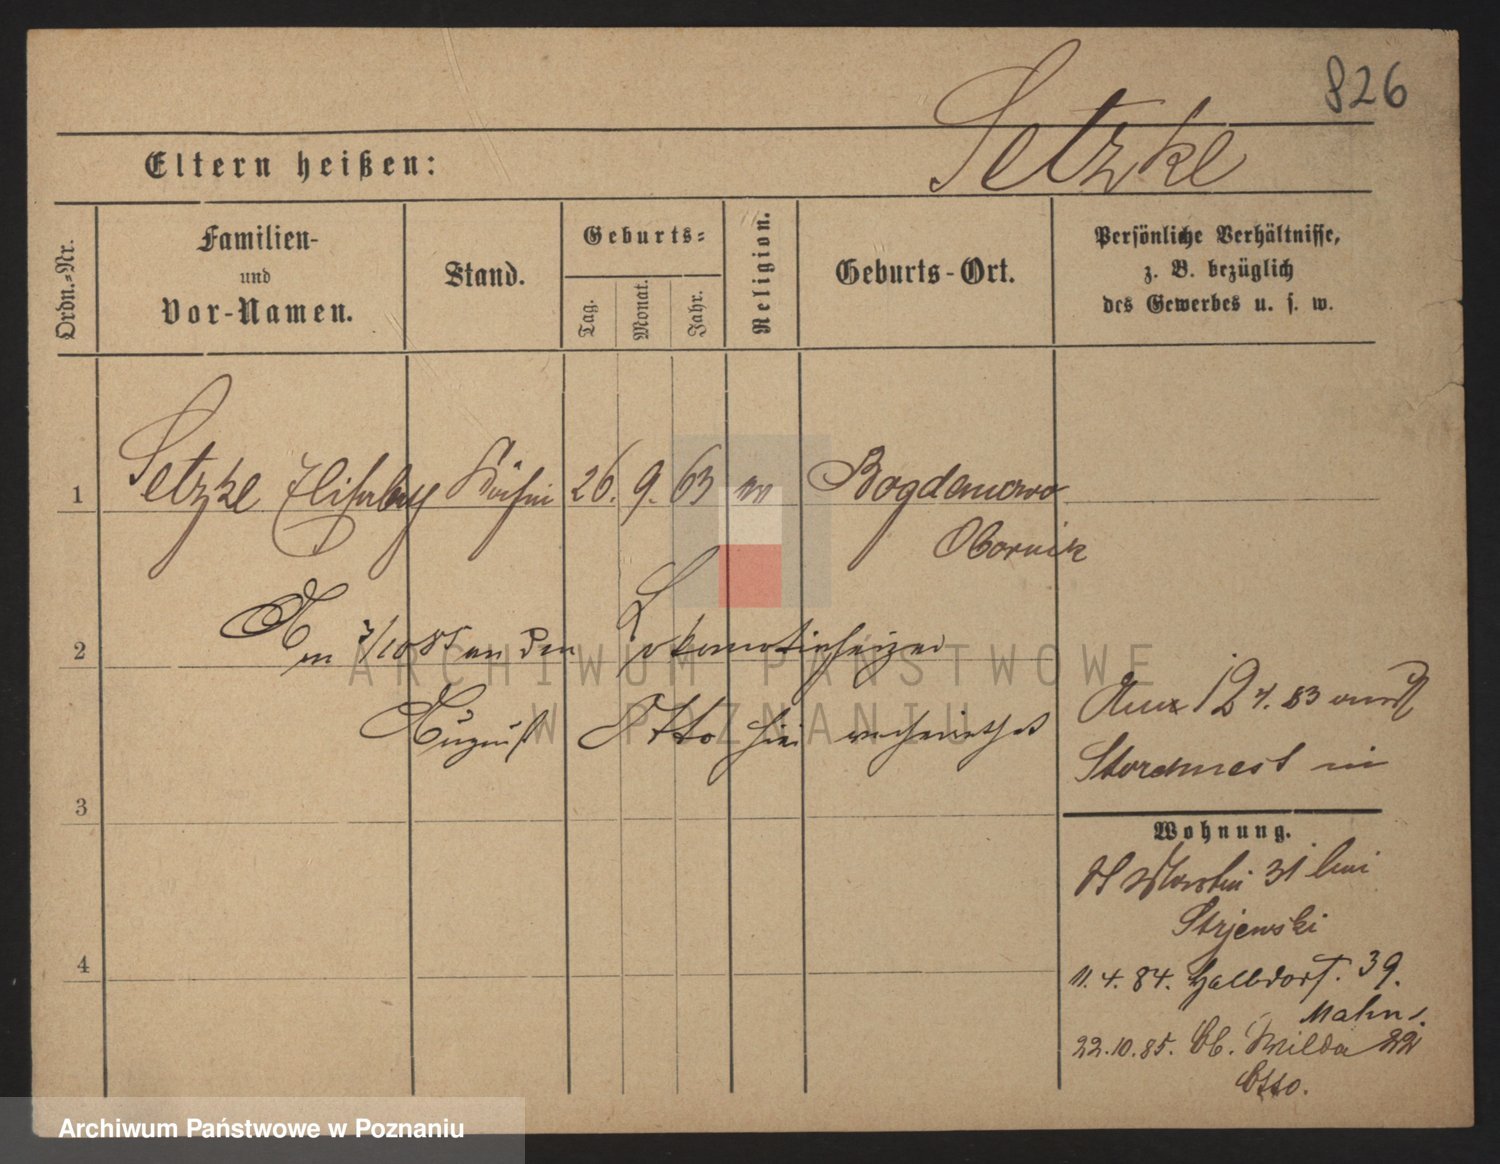 826
Setzke
Eltern heißen:
Ordn.=Nr.
Familien-
und
Vor-Namen.
Stand.
Geburts=
Tag.
Monat.
Jahr.
Religion.
Geburts-Ort.
Persönliche Verhältnisse,
z. B. bezüglich
des Gewerbes u. s. w.
1 Setzke Elisabeth Köchin 26. 9. 63 Bogdanowo
Obornik
2 Am 7/10 85 an den Lokomotivheizer
August Otto hier verheirathet
ARCHIWUM PAŃSTWOWE
W POZNANIU
12 4. 83
Storchnest in
3
Wohnung.
St Martin 31 bei
Strjewski
4
11. 4. 84. Halbdorf. 39.
Mahn.
22.10.85. Ob. Wilda 22
Otto.
Archiwum Państwowe w Poznaniu